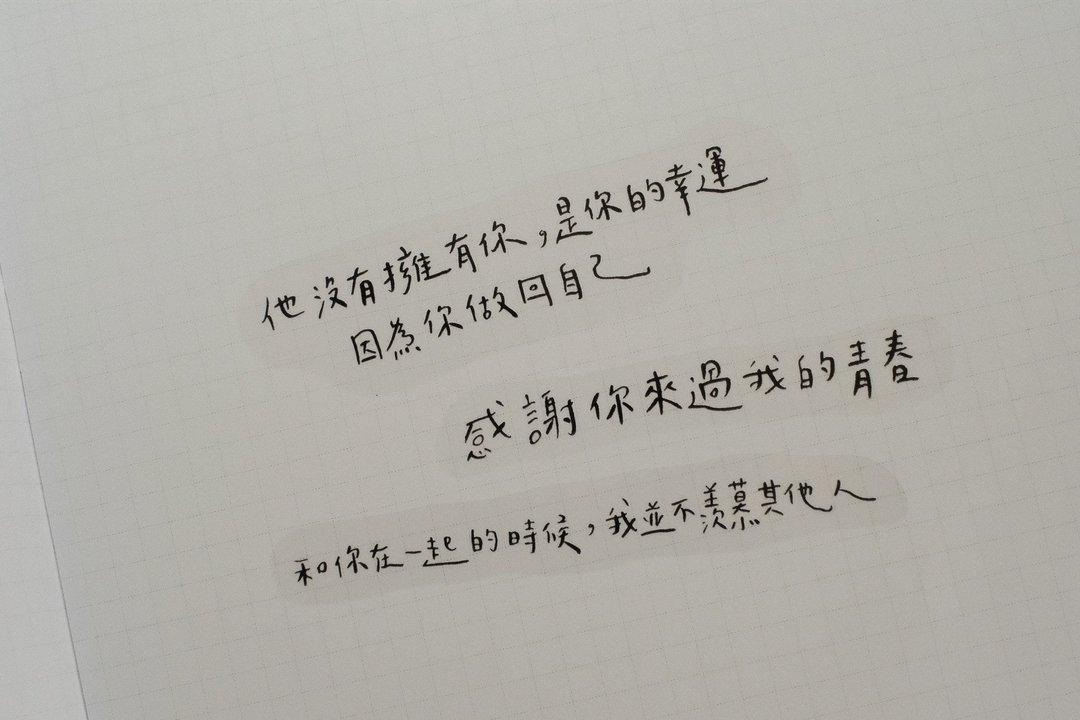 他沒有擁有你，是你的幸運
因為你做回自己
感謝你來過我的青春
和你在一起的時候，我並不羨慕其他人